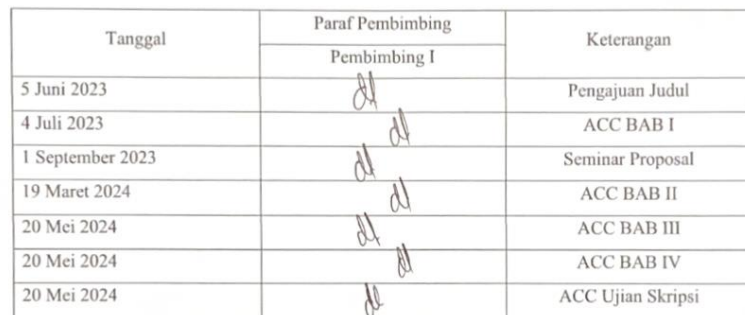 Tanggal Paraf Pembimbing Keterangan
Pembimbing I
5 Juni 2023 Pengajuan Judul
4 Juli 2023 ACC BAB I
1 September 2023 Seminar Proposal
19 Maret 2024 ACC BAB II
20 Mei 2024 ACC BAB III
20 Mei 2024 ACC BAB IV
20 Mei 2024 ACC Ujian Skripsi